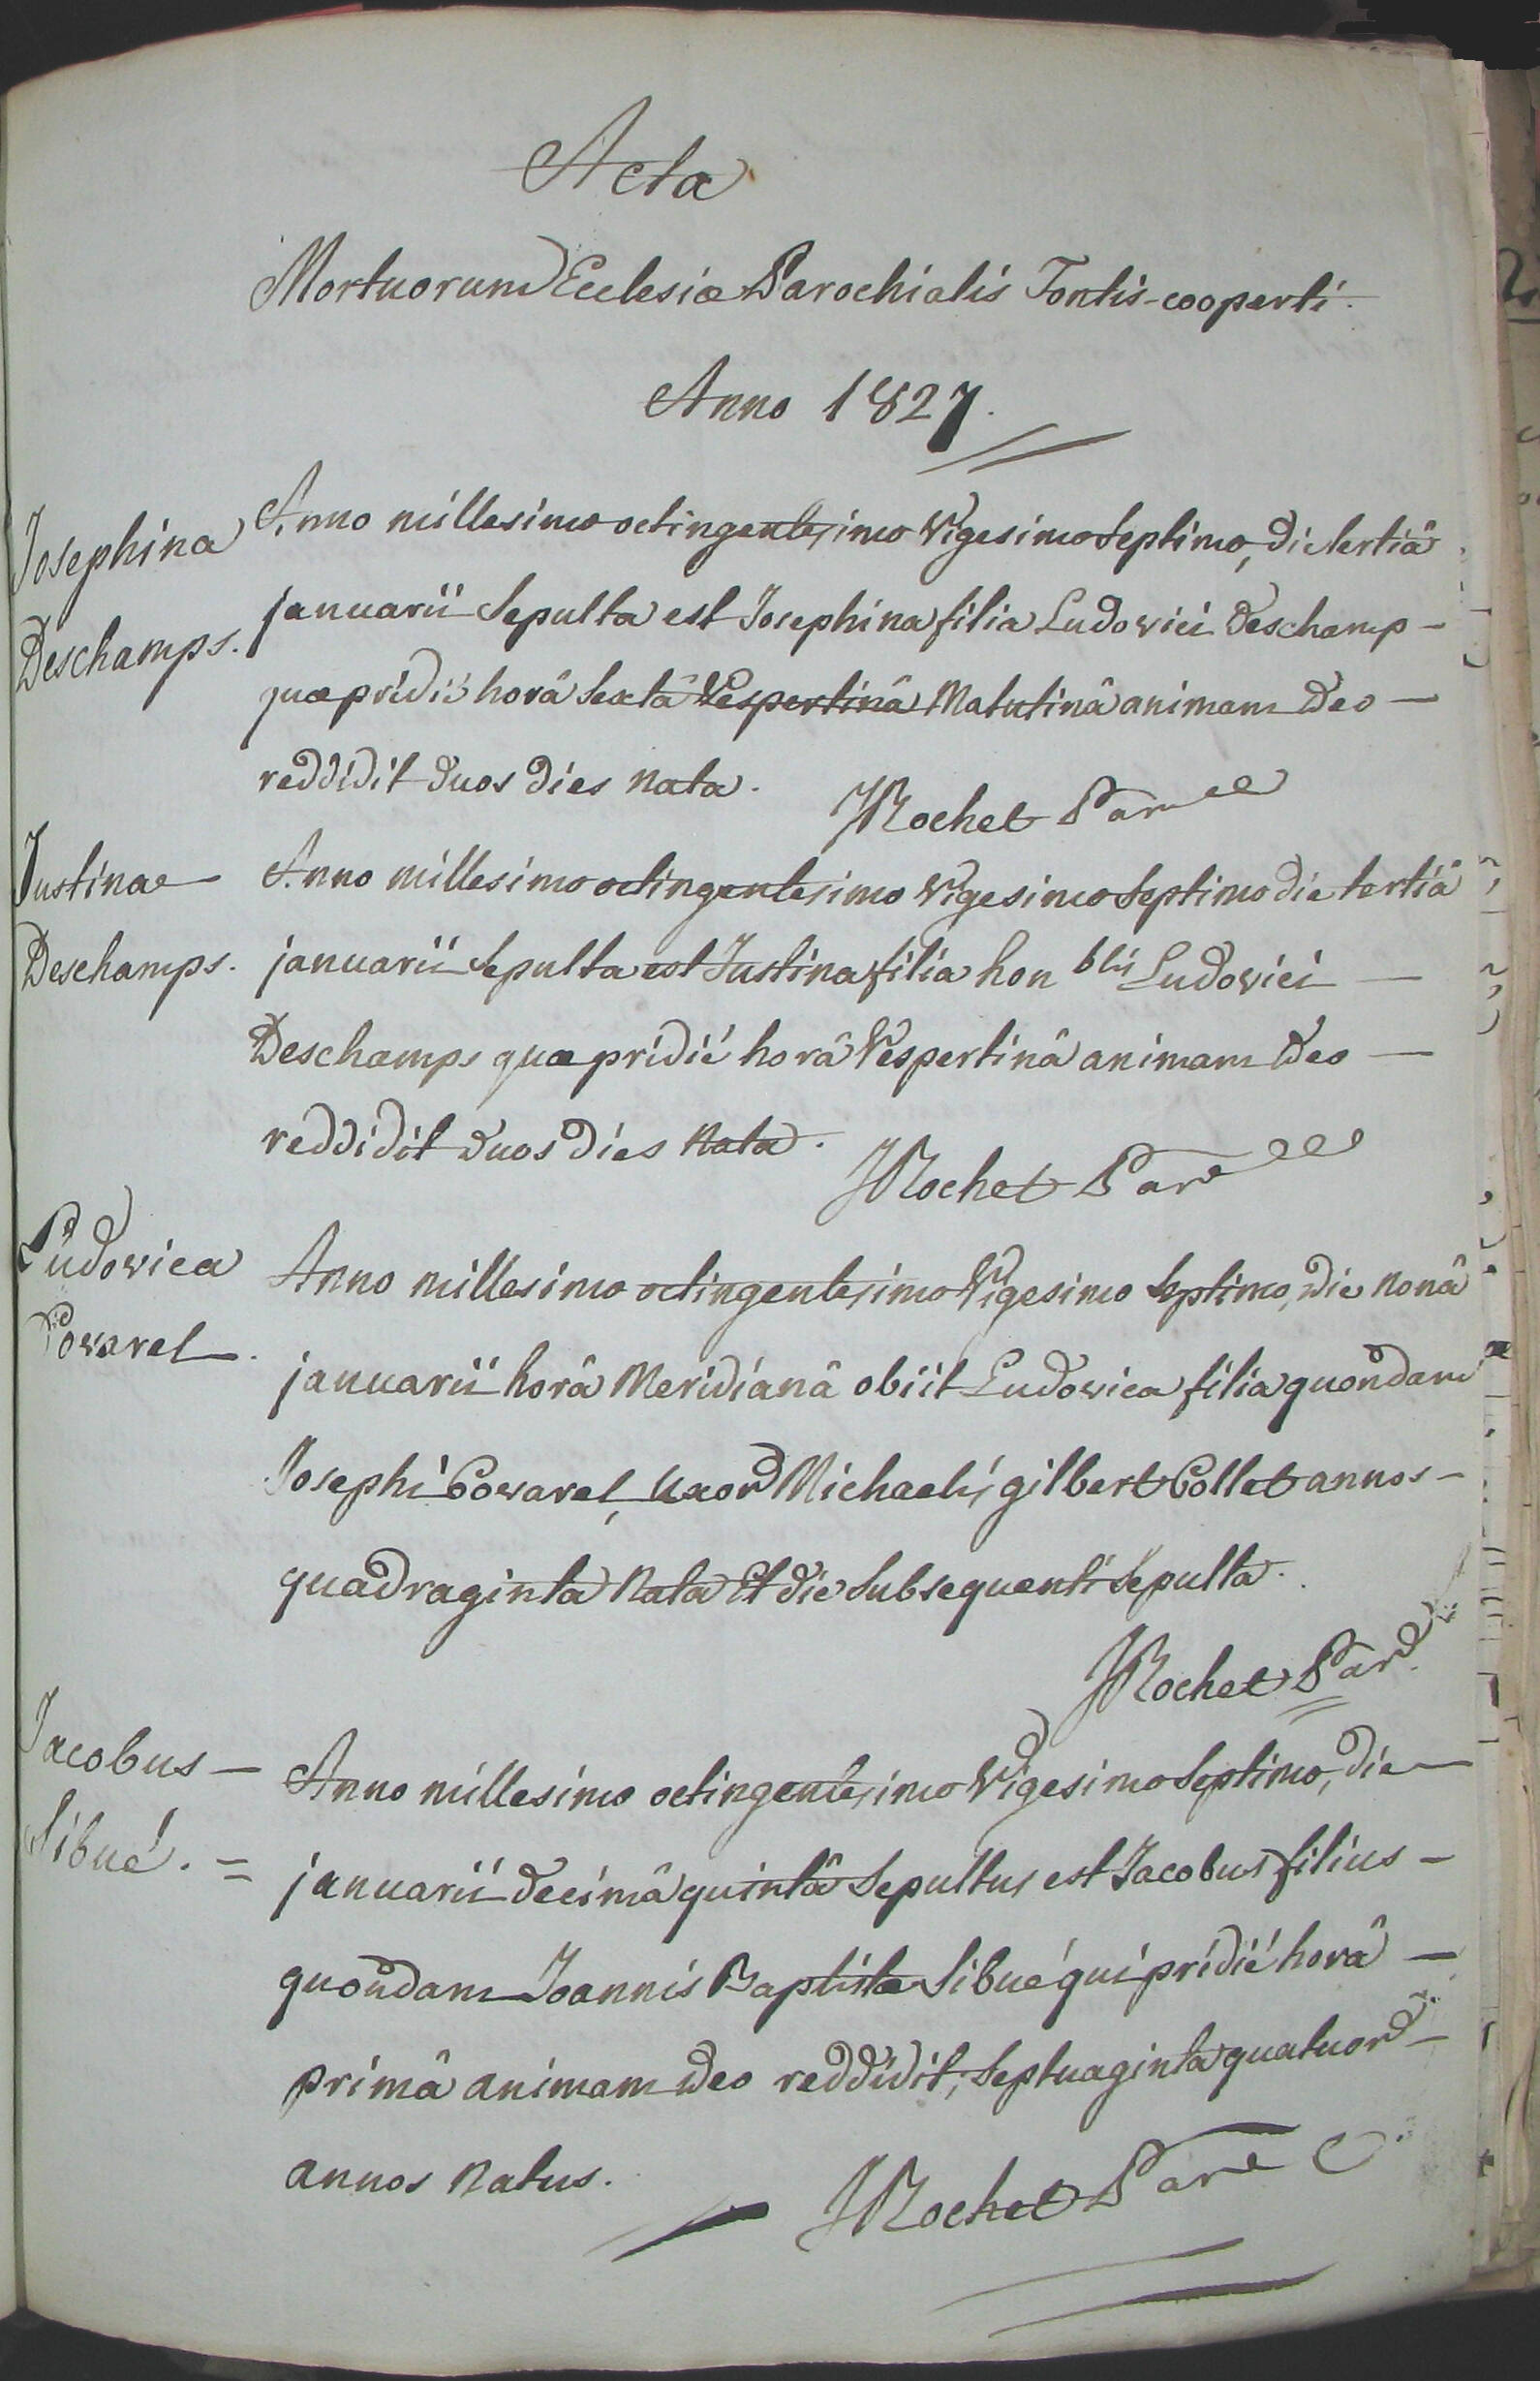 Acta
Mortuorum Ecclesiæ Parochialis Fontis-cooperti.
Anno 1827.
Josephina
Deschamps.
Anno millesimo octingentesimo Vigesimo Septimo, die tertiâ
januarii Sepulta est Josephina filia Ludovici Deschamp -
quæ pridié horâ Sextâ Vespertinâ Matutinâ animam Deo -
reddidit duos dies nata.
JRochet Par
Justina -
Deschamps.
Anno millesimo octingentesimo Vigesimo Septimo die tertiâ
januarii Sepulta est Justina filia hon blis Ludovici -
Deschamps quæ pridié horâ Vespertinâ animam Deo -
reddidit duos dies Nata.
JRochet Par
Ludovica
Covarel.
Anno millesimo octingentesimo Vigesimo Septimo, die nonâ
januarii horâ Meridianâ obiit Ludovica filia quondam
Josephi Covarel, Uxor Michaelis gilbert Collet annos -
quadraginta Nata Et die Subsequenti Sepulta.
JRochet Par
Jacobus -
Sibué. =
Anno millesimo octingentesimo Vigesimo Septimo, die -
januarii decimâ quintâ Sepultus est Jacobus filius -
quondam Joannis Baptistæ Sibué qui pridié horâ -
primâ animam Deo reddidit, Septuaginta quatuor -
annos Natus.
JRochet Par